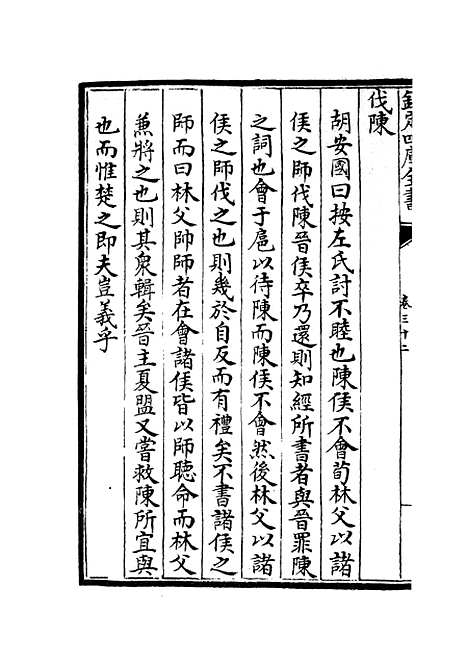 欽定四庫全書
卷三十二
伐陳
胡安國曰按左氏討不睦也陳侯不會荀林父以諸
侯之師伐陳晉侯卒乃還則知經所書者與晉罪陳
之詞也會于扈以待陳而陳侯不會然後林父以諸
侯之師伐之也則幾於自反而有禮矣不書諸侯之
師而曰林父帥師者在會諸侯皆以師聽命而林父
兼將之也則其衆輯矣晉主夏盟又嘗救陳所宜與
也而惟楚之即夫豈義乎